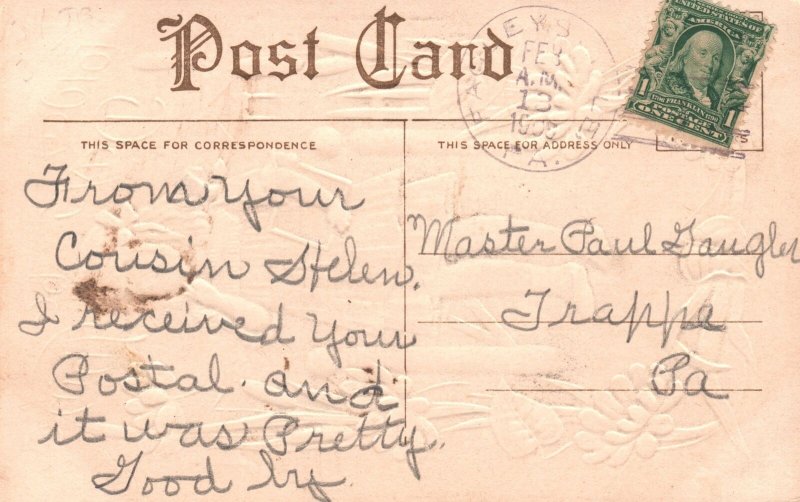 Post Card
FEB
A.M.
13
PA.
UNITED STATES OF AMERICA
FRANKLIN
1 1
ONE CENT
THIS SPACE FOR CORRESPONDENCE
THIS SPACE FOR ADDRESS ONLY
From your
Cousin Helen.
I received your
Postal. and
it was Pretty.
Good by.
Master Paul Gaugler
Trappe
Pa